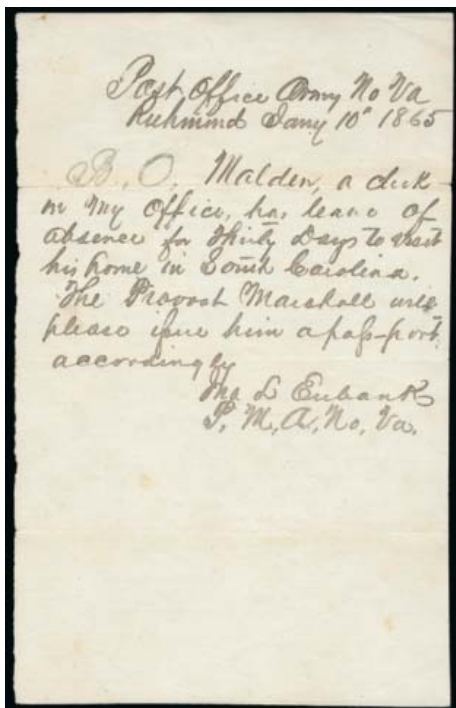 Post Office Army No Va
Richmond Jany 10th 1865
B. O. Malden, a clerk
in my Office, has leave of
absence for Thirty Days to visit
his home in South Carolina.
The Provost Marshall will
please issue him a pass-port
accordingly
Jno L Eubank
P. M, A, No, Va.